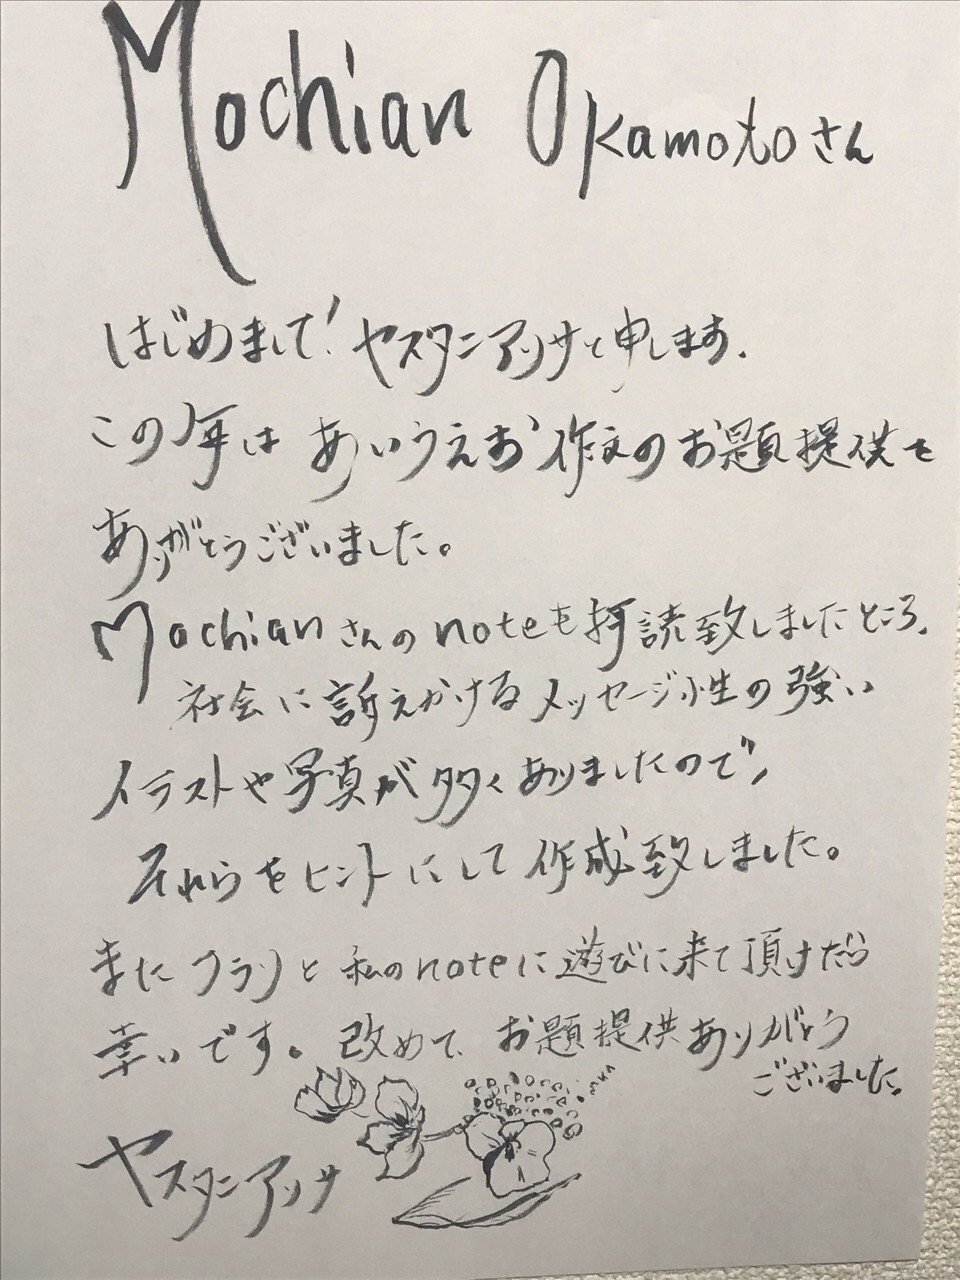 Mochian Okamotoさん
はじめまして!ヤスタニアリサと申します.
この年は あいうえお作文のお題提供を
ありがとうございました。
Mochianさんのnoteも拝読致しましたところ、
社会に訴えかけるメッセージ性の強い
イラストや写真が多くありましたので、
それらをヒントにして作成致しました。
またフラリと私のnoteに遊びに来て頂けたら
幸いです。改めて、お題提供ありがとう
ございました。
ヤスタニアリサ